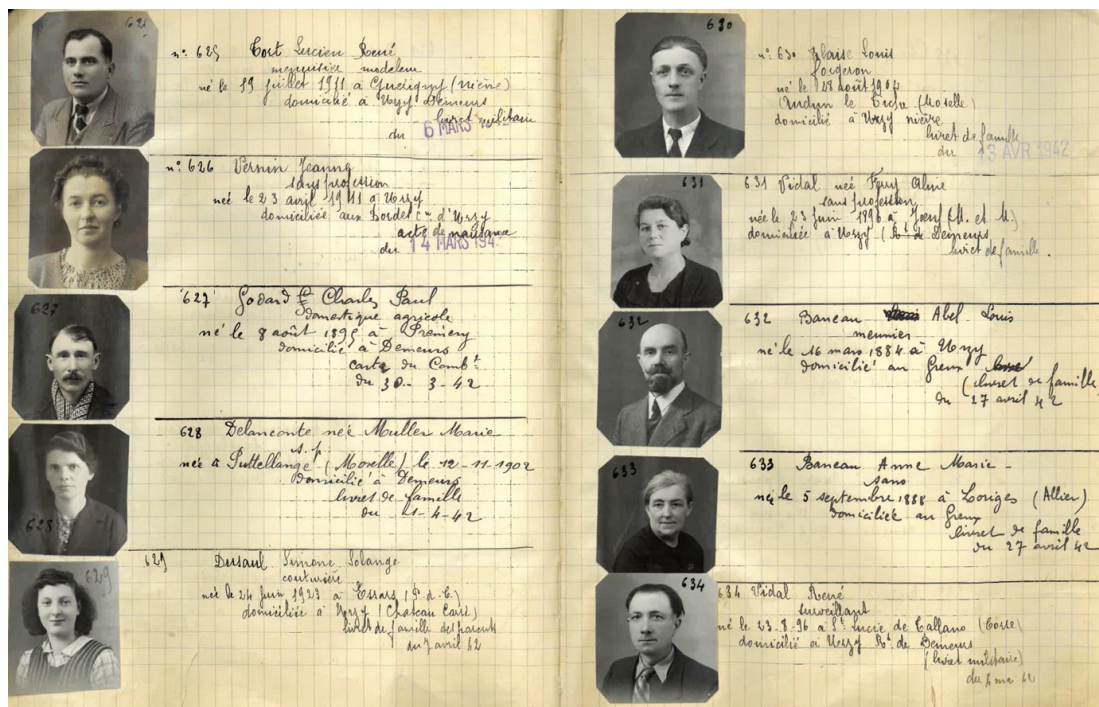 625
n° 625 Cort Lucien René
menuisier modeleur
né le 19 juillet 1911 à Guérigny (Nièvre)
domicilié à Urzy Demeurs
livret militaire
du 6 MARS
n° 626 Vernin Jeanne
sans profession
née le 23 avril 1911 à Urzy
domiciliée aux Bordes Cne d'Urzy
acte de naissance
du 14 MARS 194
627
627 Godard Charles Paul
domestique agricole
né le 8 août 1895 à Prémery
domicilié à Demeurs
carte du Combt
du 30-3-42
628
628 Delanconte née Muller Marie
s.p.
née à Puttellange (Moselle) le 12-11-1902
Domicilié à Demeurs
livret de famille
du 1-4-42
629
629 Dusaul Simone Solange
couturière
née le 24 juin 1923 à Essars (P.d.C.)
domiciliée à Urzy (Chateau Carré)
livret de famille des parents
du 7 avril 42
630
n° 630 Blaise Louis
forgeron
né le 28 août 1904
Audun le Tiche (Moselle)
domicilié à Urzy nièvre
livret de famille
du 13 AVR 1942
631
631 Vidal née Ferry Aline
sans profession
née le 23 juin 1896 à Joeuf (M. et M.)
domiciliée à Urzy (Rte de Demeurs
livret de famille.
632
632 Baneau Abel-Louis
meunier
né le 16 mars 1884 à Urzy
domicilié au Greux
(livret de famille
du 27 avril 42
633
633 Baneau Anne Marie-
sans
née le 5 septembre 1888 à Loriges (Allier)
Domiciliée au Greux
livret de famille
du 27 avril 42
634
634 Vidal René
surveillant
né le 23-8-96 à Ste Lucie de Tallano (Corse)
domicilié à Urzy Rte de Demeurs
(livret militaire)
du 4 mai 42